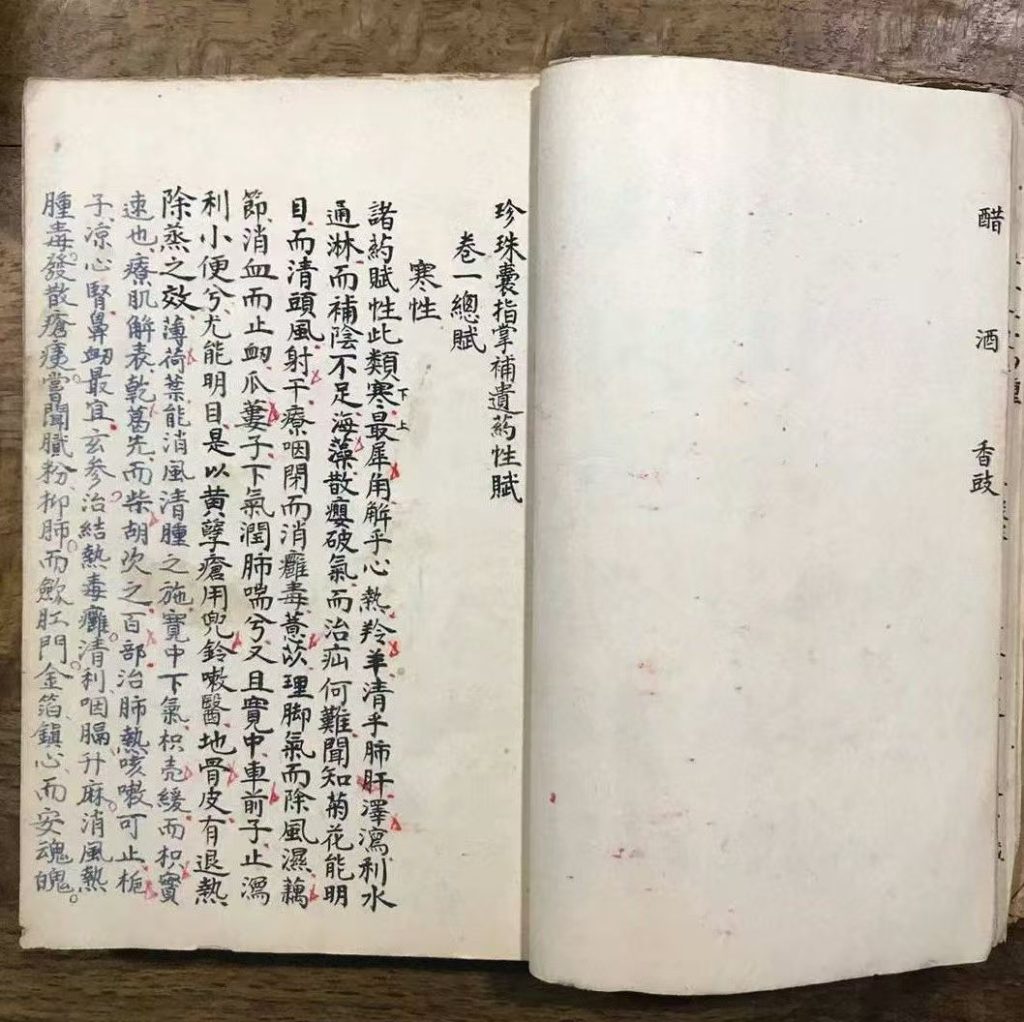 醋 酒 香豉
珍珠囊指掌補遺葯性賦
卷一總賦
寒性
諸葯賦性此類寒最犀角解乎心熱羚羊清乎肺肝澤瀉利水
下 上
通淋而補陰不足海藻散癭破氣而治疝何難聞知菊花能明
目而清頭風射干療咽閉而消癰毒薏苡理脚氣而除風濕藕
節消血而止衂瓜蔞子下氣潤肺喘兮又且寬中車前子止瀉
利小便兮尤能明目是以黄蘗瘡用兜鈴嗽醫地骨皮有退熱
除蒸之效薄荷葉能消風清腫之施寬中下氣枳壳緩而枳實
速也療肌解表乾葛先而柴胡次之百部治肺熱咳嗽可止梔
子凉心腎鼻衂最宜玄參治結熱毒癰清利咽膈升麻消風熱
腫毒發散瘡痍嘗聞膩粉抑肺而歛肛門金箔鎮心而安魂魄